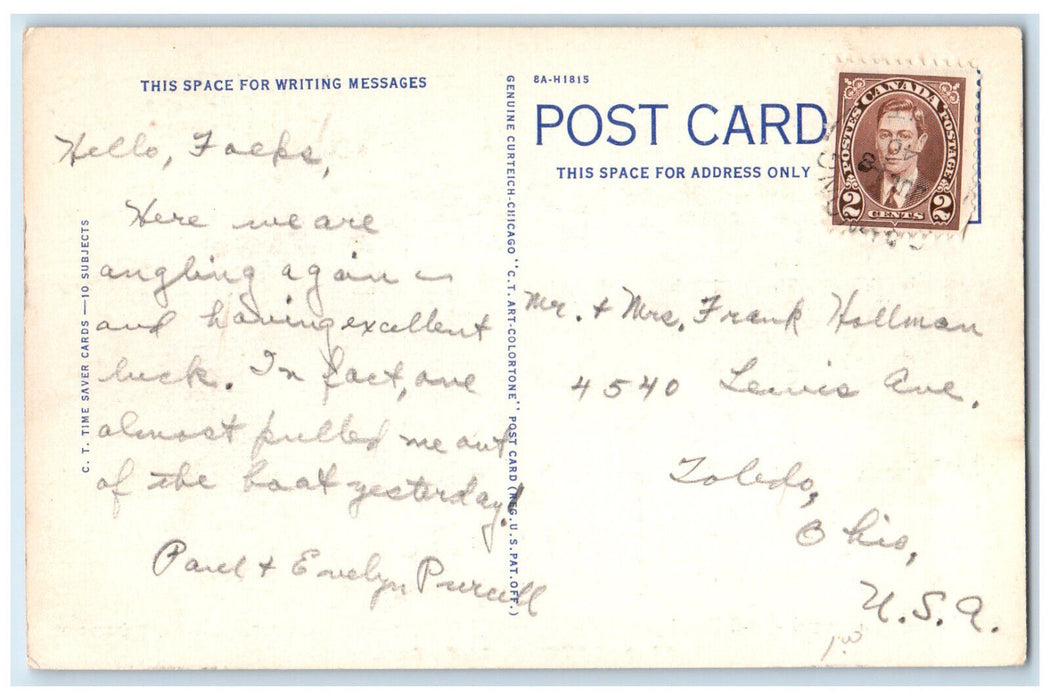 THIS SPACE FOR WRITING MESSAGES
Hello, Folks,
Here we are
angling again –
and having excellent
luck. In fact, one
almost pulled me out
of the boat yesterday!
Paul + Evelyn Purcell
C. T. TIME SAVER CARDS — 10 SUBJECTS
GENUINE CURTEICH-CHICAGO "C.T. ART-COLORTONE" POST CARD (REG. U.S. PAT. OFF.)
8A-H1815
POST CARD
THIS SPACE FOR ADDRESS ONLY
CANADA
POSTES POSTAGE
2 CENTS 2
Mr. + Mrs. Frank Hollman
4540 Lewis Ave.
Toledo,
Ohio,
U.S.A.